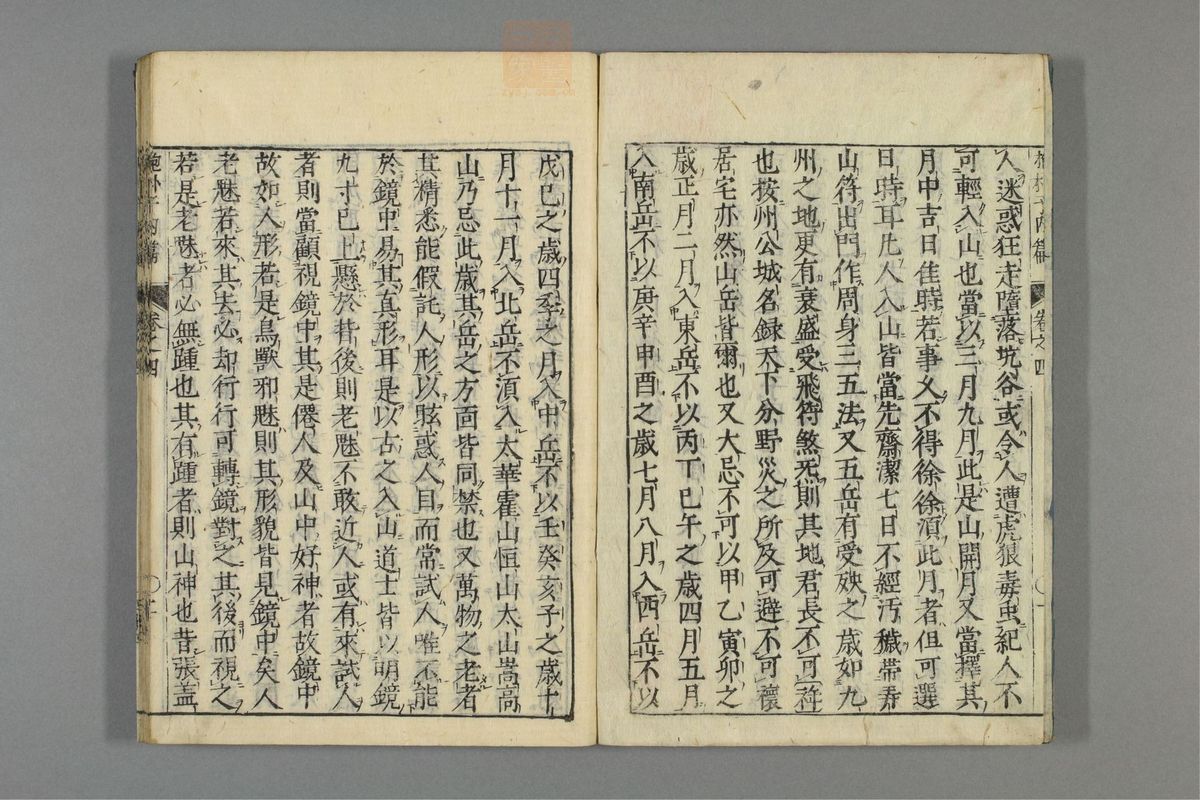 抱朴子内篇 卷之四
人迷惑狂走墮落坑谷或令人遭虎狼毒虫紀人不
可輕入山也當以三月九月此是山開月又當擇其
月中吉日佳時若事又不得徐徐湏此月者但可選
日時耳凡人入山皆當先齋潔七日不經汚穢帶昇
山符出門作周身三五法又五岳有受殃之歲如九
州之地更有衰盛受飛符煞炁則其地君長不可作
也按州公城名録天下分野災之所及可避不可禳
居宅亦然山岳皆爾也又大忌不可以甲乙寅卯之
歲正月二月入東岳不以丙丁巳午之歲四月五月
入南岳不以庚辛申酉之歲七月八月入西岳不以
戊巳之歲四季之月入中岳不以壬癸亥子之歲十
月十一月入北岳不湏入太華霍山恒山太山嵩高
山乃忌此歲其岳之方面皆同禁也又萬物之老者
其精悉能假託人形以眩惑人目而常試人唯不能
於鏡中易其真形耳是以古之入山道士皆以明鏡
九寸已上懸於背後則老魅不敢近人或有來試人
者則當顧視鏡中其是僊人及山中好神者故鏡中
故如人形若是鳥獸邪魅則其形貌皆見鏡中矣人
老魅若來其去必却行行可轉鏡對之其後而視之
若是老魅者必無踵也其有踵者則山神也昔張蓋
抱朴子内篇 卷之四